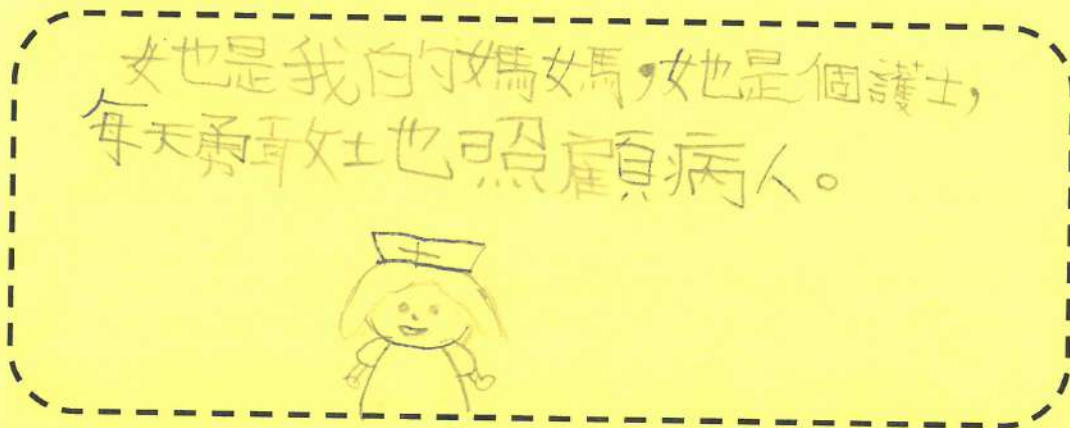 她是我的媽媽,她是個護士,
每天勇敢地照顧病人。